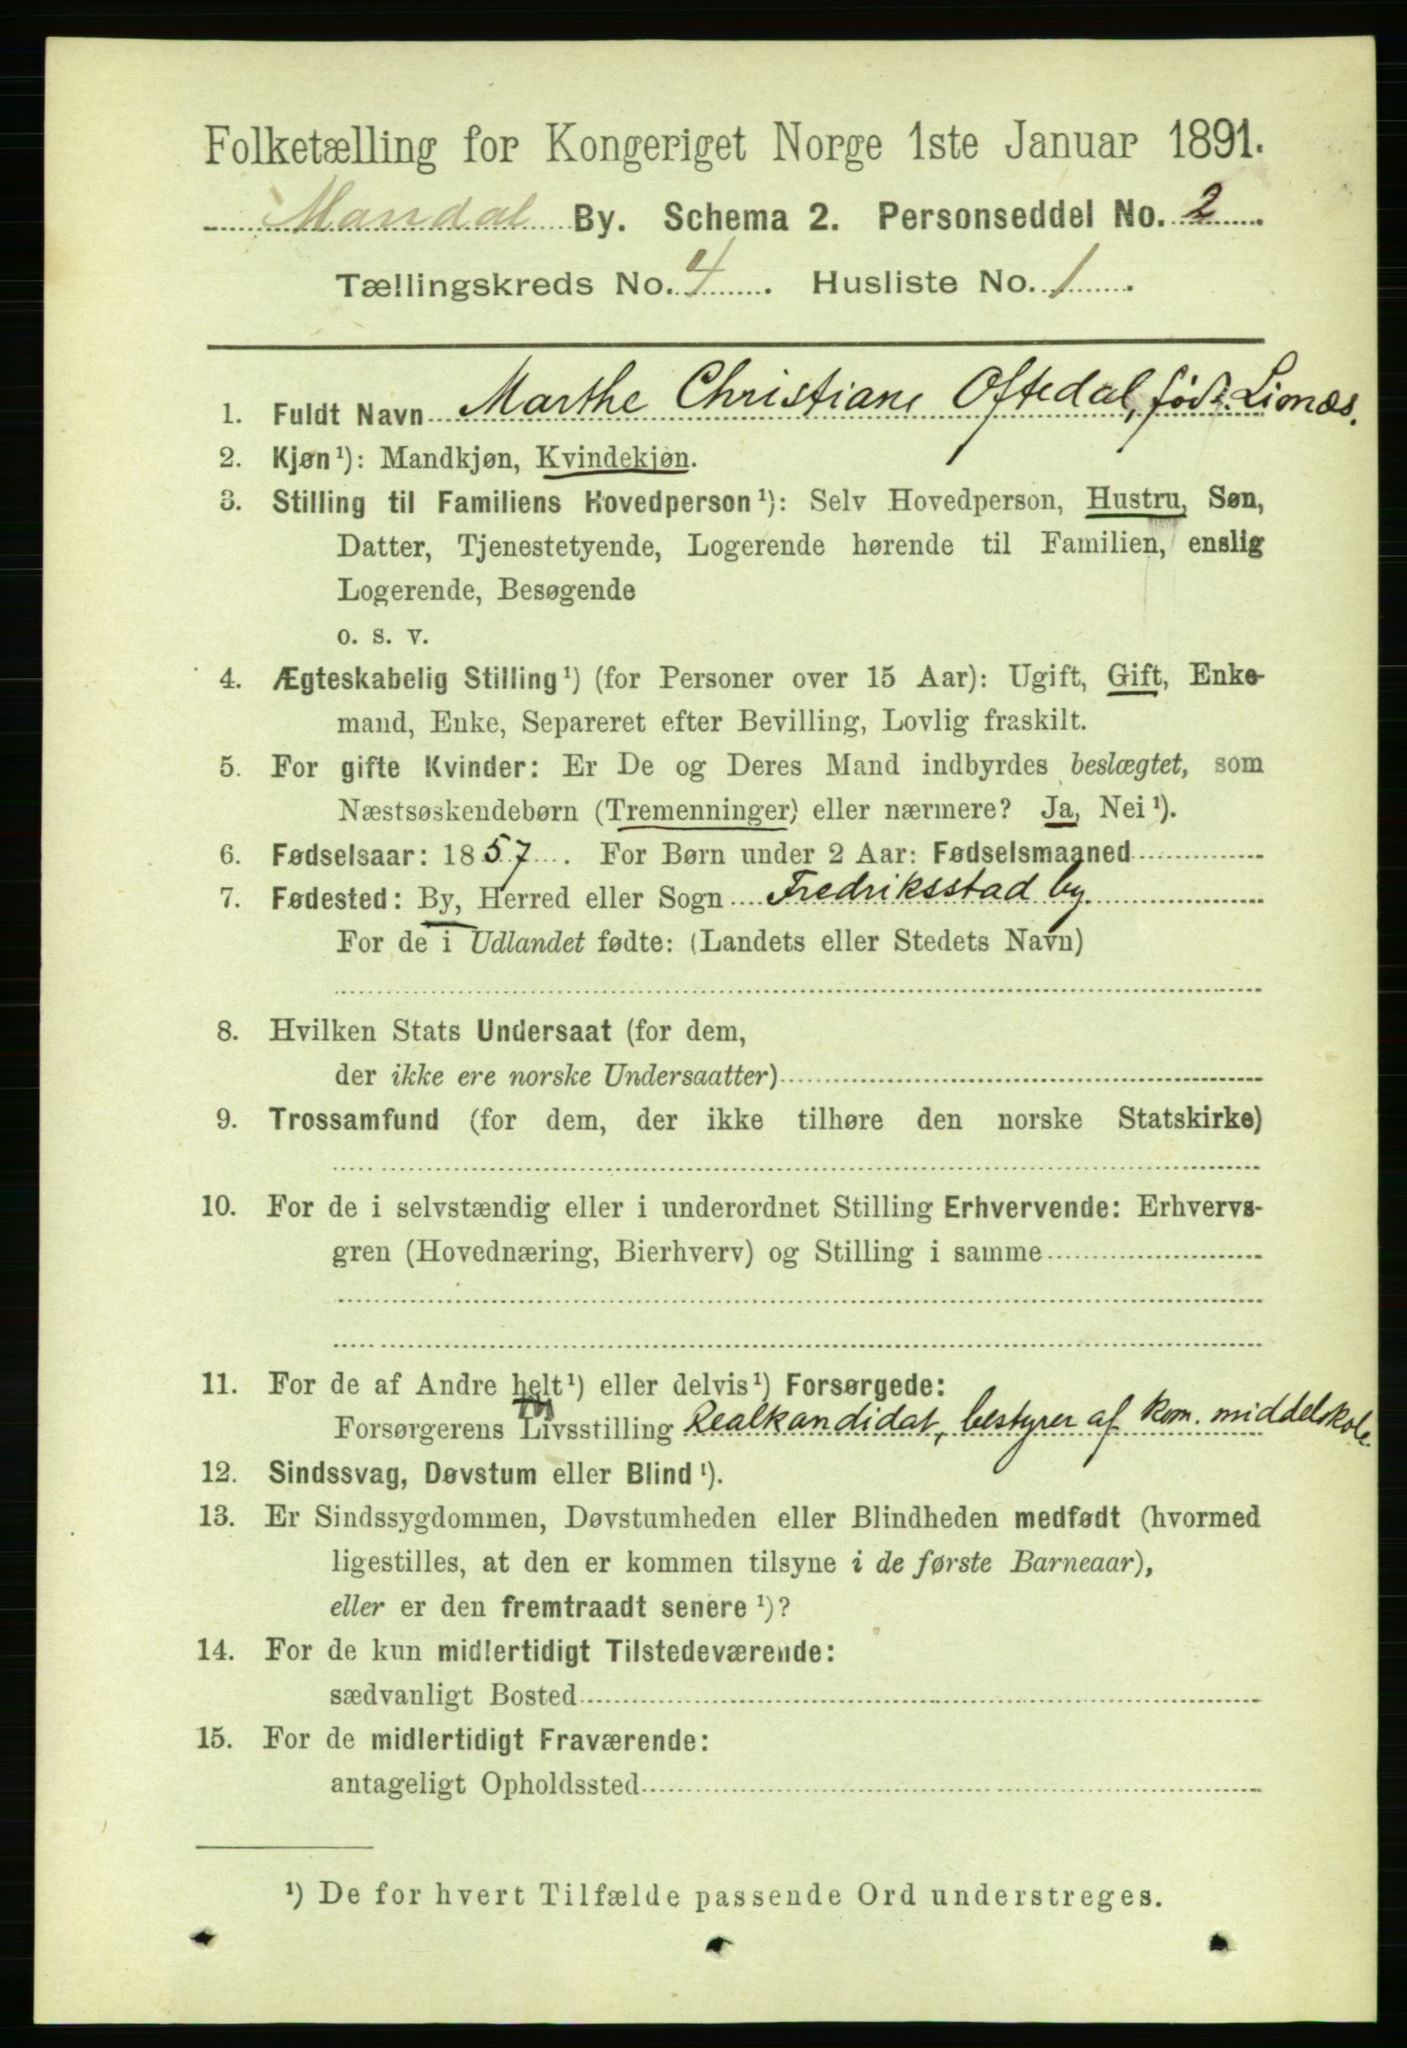 Folketælling for Kongeriget Norge 1ste Januar 1891.
Mandal By. Schema 2. Personseddel No. 2
Tællingskreds No. 4. Husliste No. 1.
1. Fuldt Navn Marthe Christiane Oftedal, født Lionæs.
2. Kjøn¹): Mandkjøn, Kvindekjøn.
3. Stilling til Familiens Hovedperson¹): Selv Hovedperson, Hustru, Søn,
Datter, Tjenestetyende, Logerende hørende til Familien, enslig
Logerende, Besøgende
o. s. v.
4. Ægteskabelig Stilling¹) (for Personer over 15 Aar): Ugift, Gift, Enke-
mand, Enke, Separeret efter Bevilling, Lovlig fraskilt.
5. For gifte Kvinder: Er De og Deres Mand indbyrdes beslægtet, som
Næstsøskendebørn (Tremenninger) eller nærmere? Ja, Nei¹).
6. Fødselsaar: 1857. For Børn under 2 Aar: Fødselsmaaned
7. Fødested: By, Herred eller Sogn Fredriksstad by.
For de i Udlandet fødte: (Landets eller Stedets Navn)
8. Hvilken Stats Undersaat (for dem,
der ikke ere norske Undersaatter)
9. Trossamfund (for dem, der ikke tilhøre den norske Statskirke)
10. For de i selvstændig eller i underordnet Stilling Erhvervende: Erhvervs-
gren (Hovednæring, Bierhverv) og Stilling i samme
11. For de af Andre helt¹) eller delvis¹) Forsørgede:
Forsørgerens Livsstilling Realkandidat, bestyrer af kom. middelskole.
12. Sindssvag, Døvstum eller Blind¹).
13. Er Sindssygdommen, Døvstumheden eller Blindheden medfødt (hvormed
ligestilles, at den er kommen tilsyne i de første Barneaar),
eller er den fremtraadt senere¹)?
14. For de kun midlertidigt Tilstedeværende:
sædvanligt Bosted
15. For de midlertidigt Fraværende:
antageligt Opholdssted
¹) De for hvert Tilfælde passende Ord understreges.